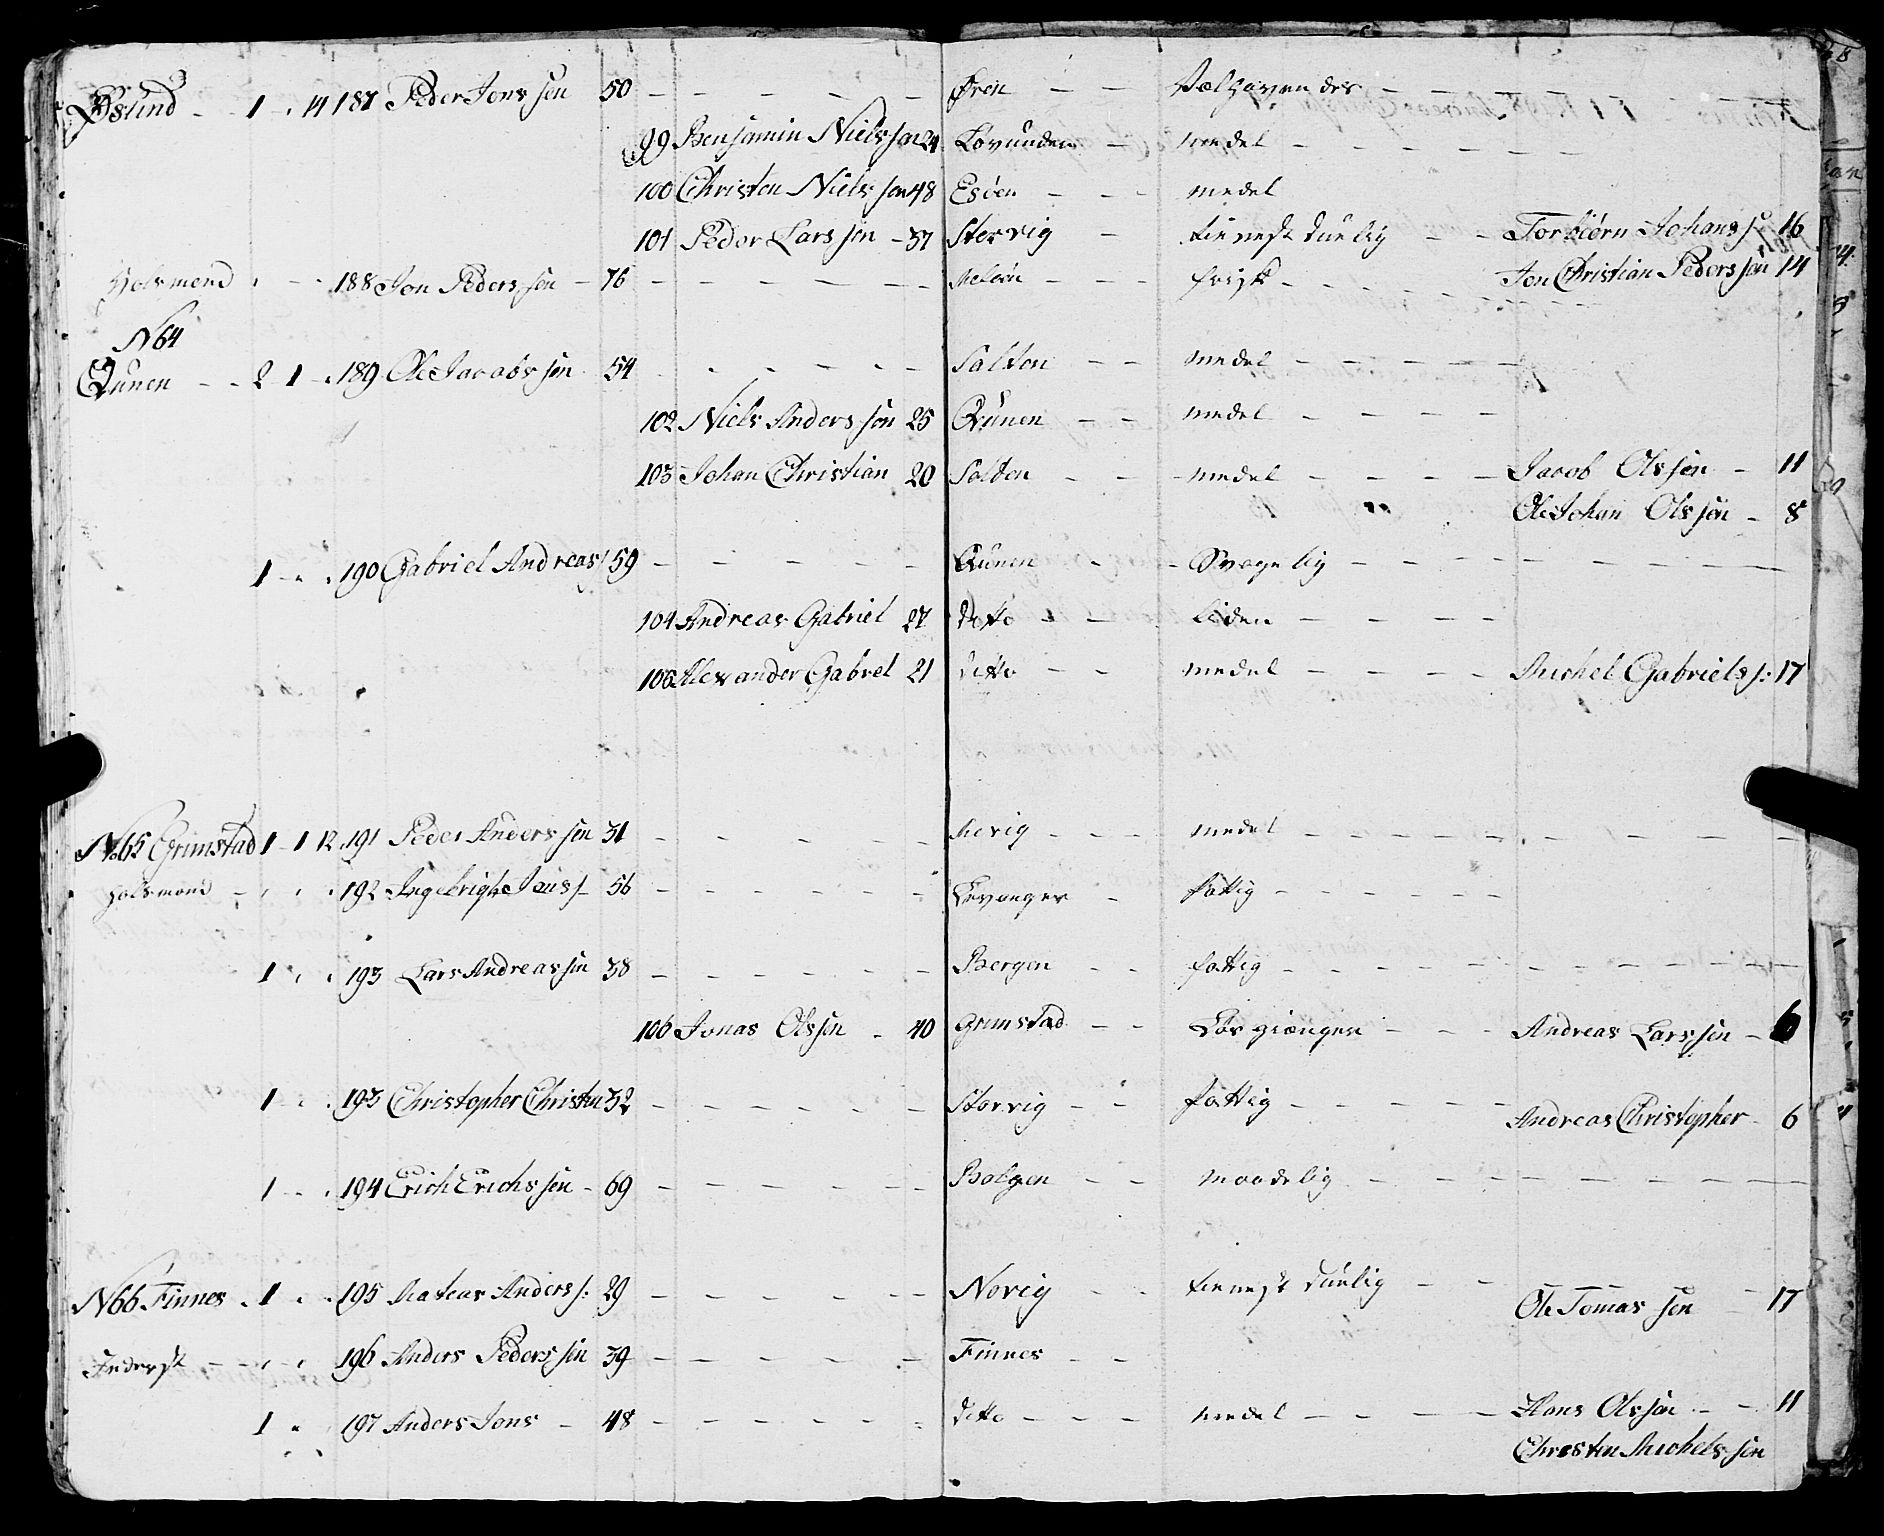 Øslind - - 1 - . 14 187 Peder Jons søn 50 - - - - - - Øren - - Velhavendes - -
99 Benjamin Niels søn 24 Lovunden - medel - - - - - -
100 Christen Niels søn 48 Esøen - - - medel
101 Peder Lars søn - 37 Storvig - tienest duelig - - Torbiørn Johans s. 16
Holsmend . - . 188 Jon Peders søn - 76 - - - - - - Meløen - - - frisk - - - - Jon Christian Peders søn 14
N 64
Qunen - - 2 1 - . 189 Ole Jacobs søn 54 - - - - - - Salten - - medel - - - - -
102 Niels Anders søn 25 Qunen - - medel - - - - -
103 Johan Christian 20 Salten - - medel - - - - Jacob Ols søn - 11
Ole Johan Ols søn - 8
1 - . . 190 Gabriel Andreas s 59 - - - - - - Qunen - - Svagelig - - - - - - - -
104 Andreas Gabriel 27 Ditto - - liden - - - -
105 Alexander Gabrel 21 ditto - - medel - - - - Michel Gabriels s: 17
No 65 Grimstad 1 - 1 12 . 191 Peder Anders søn 31 - - - - - Mevig - - - medel - - - - - - - - -
Holsmand - . . . 192 Ingebrigt Jens s - 56 - - - - - - Levanger - fattig - - - - -
1 . . 193 Lars Andreas søn 38 - - - - - - Bergen - - fattig - - - - - - - - - -
106 Jonas Ols søn - 40 Grimstad - - Løsgiænger - - - Andreas Lars søn - 6
1 . . 193 Christopher Christen 32 - - - - - - Storvig - - fattig - - - - - Andreas Christopher - 6
1 - . 194 Erich Erichs søn - 69 - - - - - - Bolgen - - maadelig - - - - - - - - -
N 66 Finnes . 1 . . 195 Mateas Anders s: 29 - - - - - - Norvig - - tienest duelig - - Ole Tomas søn - 17
Inderst - - . - . 196 Anders Peders søn 39 - - - - - - Finnes - -
1 . 197 Anders Jons - 48 - - - - - - Ditto - - - medel - - - - Hans Ols søn - - 11
Christen Michels søn